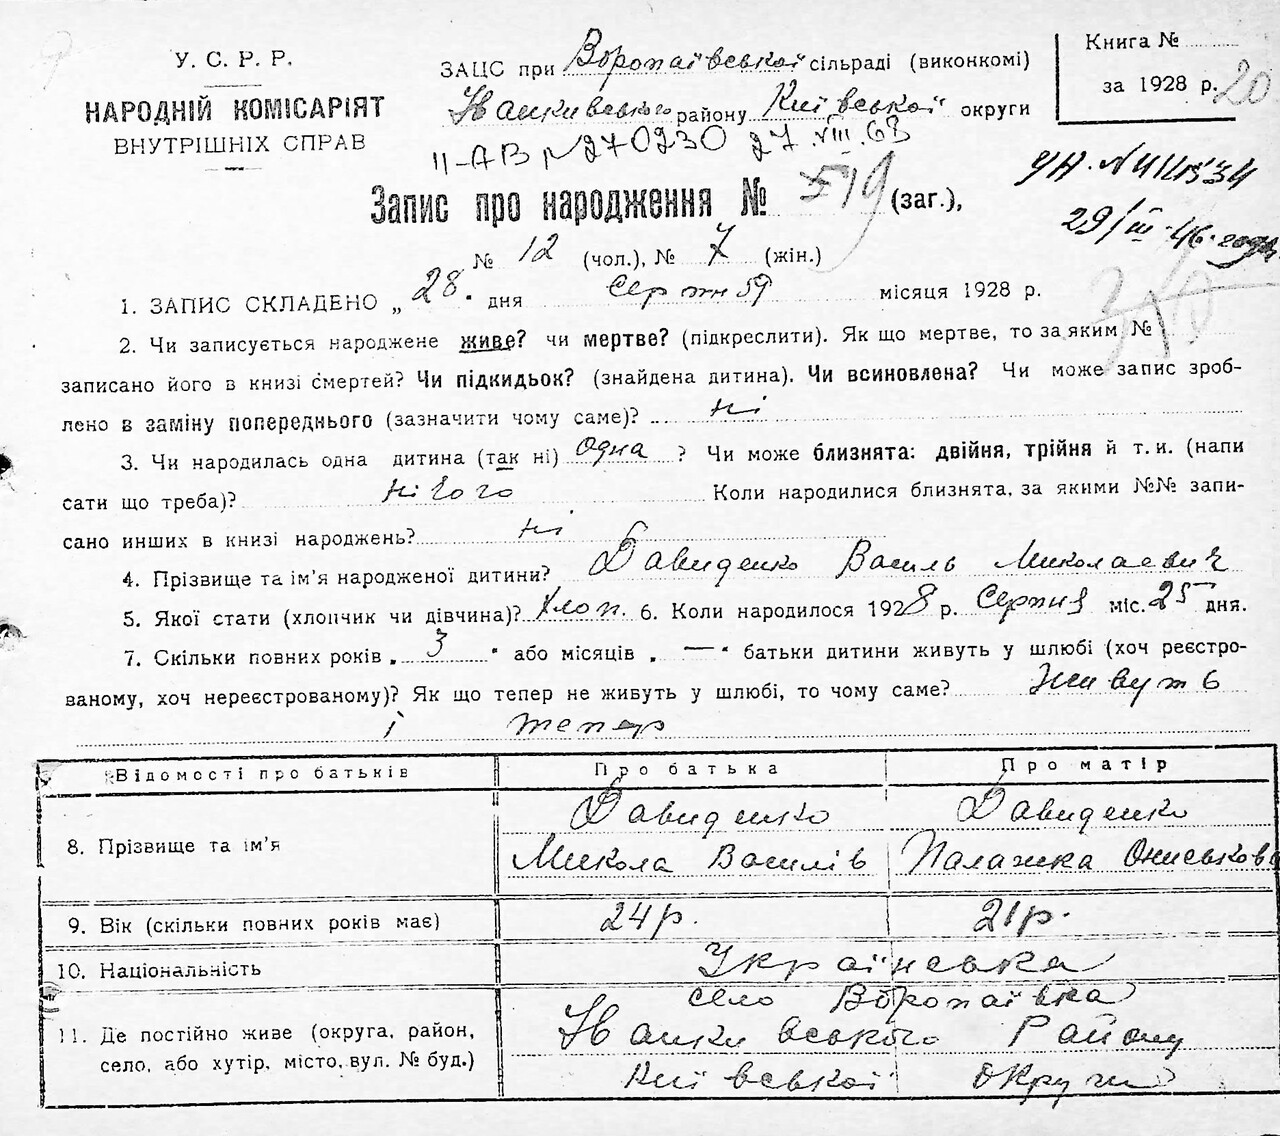 У. С. Р. Р.
НАРОДНІЙ КОМІСАРІЯТ
ВНУТРІШНІХ СПРАВ
ЗАЦС при Воропаївської сільраді (виконкомі)
Іванкивського району Київської округи
Книга №
за 1928 р. 20
II-АВ № 270230 27.VIII.63
29/III.46. года
Запис про народження № 519 (заг.),
№ 12 (чол.), № 7 (жін.)
1. ЗАПИС СКЛАДЕНО „ 28 " дня Серпня місяця 1928 р.
2. Чи записується народжене живе? чи мертве? (підкреслити). Як що мертве, то за яким №
записано його в книзі смертей? Чи підкидьок? (знайдена дитина). Чи всиновлена? Чи може запис зроб-
лено в заміну попереднього (зазначити чому саме)? Ні
3. Чи народилась одна дитина (так ні) одна ? Чи може близнята: двійня, трійня й т. и. (напи
сати що треба)? нічого Коли народилися близнята, за якими №№ запи-
сано инших в книзі народжень? Ні
4. Прізвище та ім'я народженої дитини? Давиденко Василь Миколаевич
5. Якої стати (хлопчик чи дівчина)? Хлоп. 6. Коли народилося 1928 р. Серпня міс. 25 дня.
7. Скільки повних років „ 3 " або місяців „ — " батьки дитини живуть у шлюбі (хоч реєстро-
ваному, хоч нереєстрованому)? Як що тепер не живуть у шлюбі, то чому саме? Живуть
і тепер
Відомості про батьків Про батька Про матір
Давиденко Давиденко
8. Прізвище та ім'я Микола Василів Палажка Ониськова
9. Вік (скільки повних років має) 24 р. 21 р.
10. Національність Українська
село Воропаївка
11. Де постійно живе (округа, район, Іванкивського Району
село, або хутір, місто, вул. № буд.) Київської округи